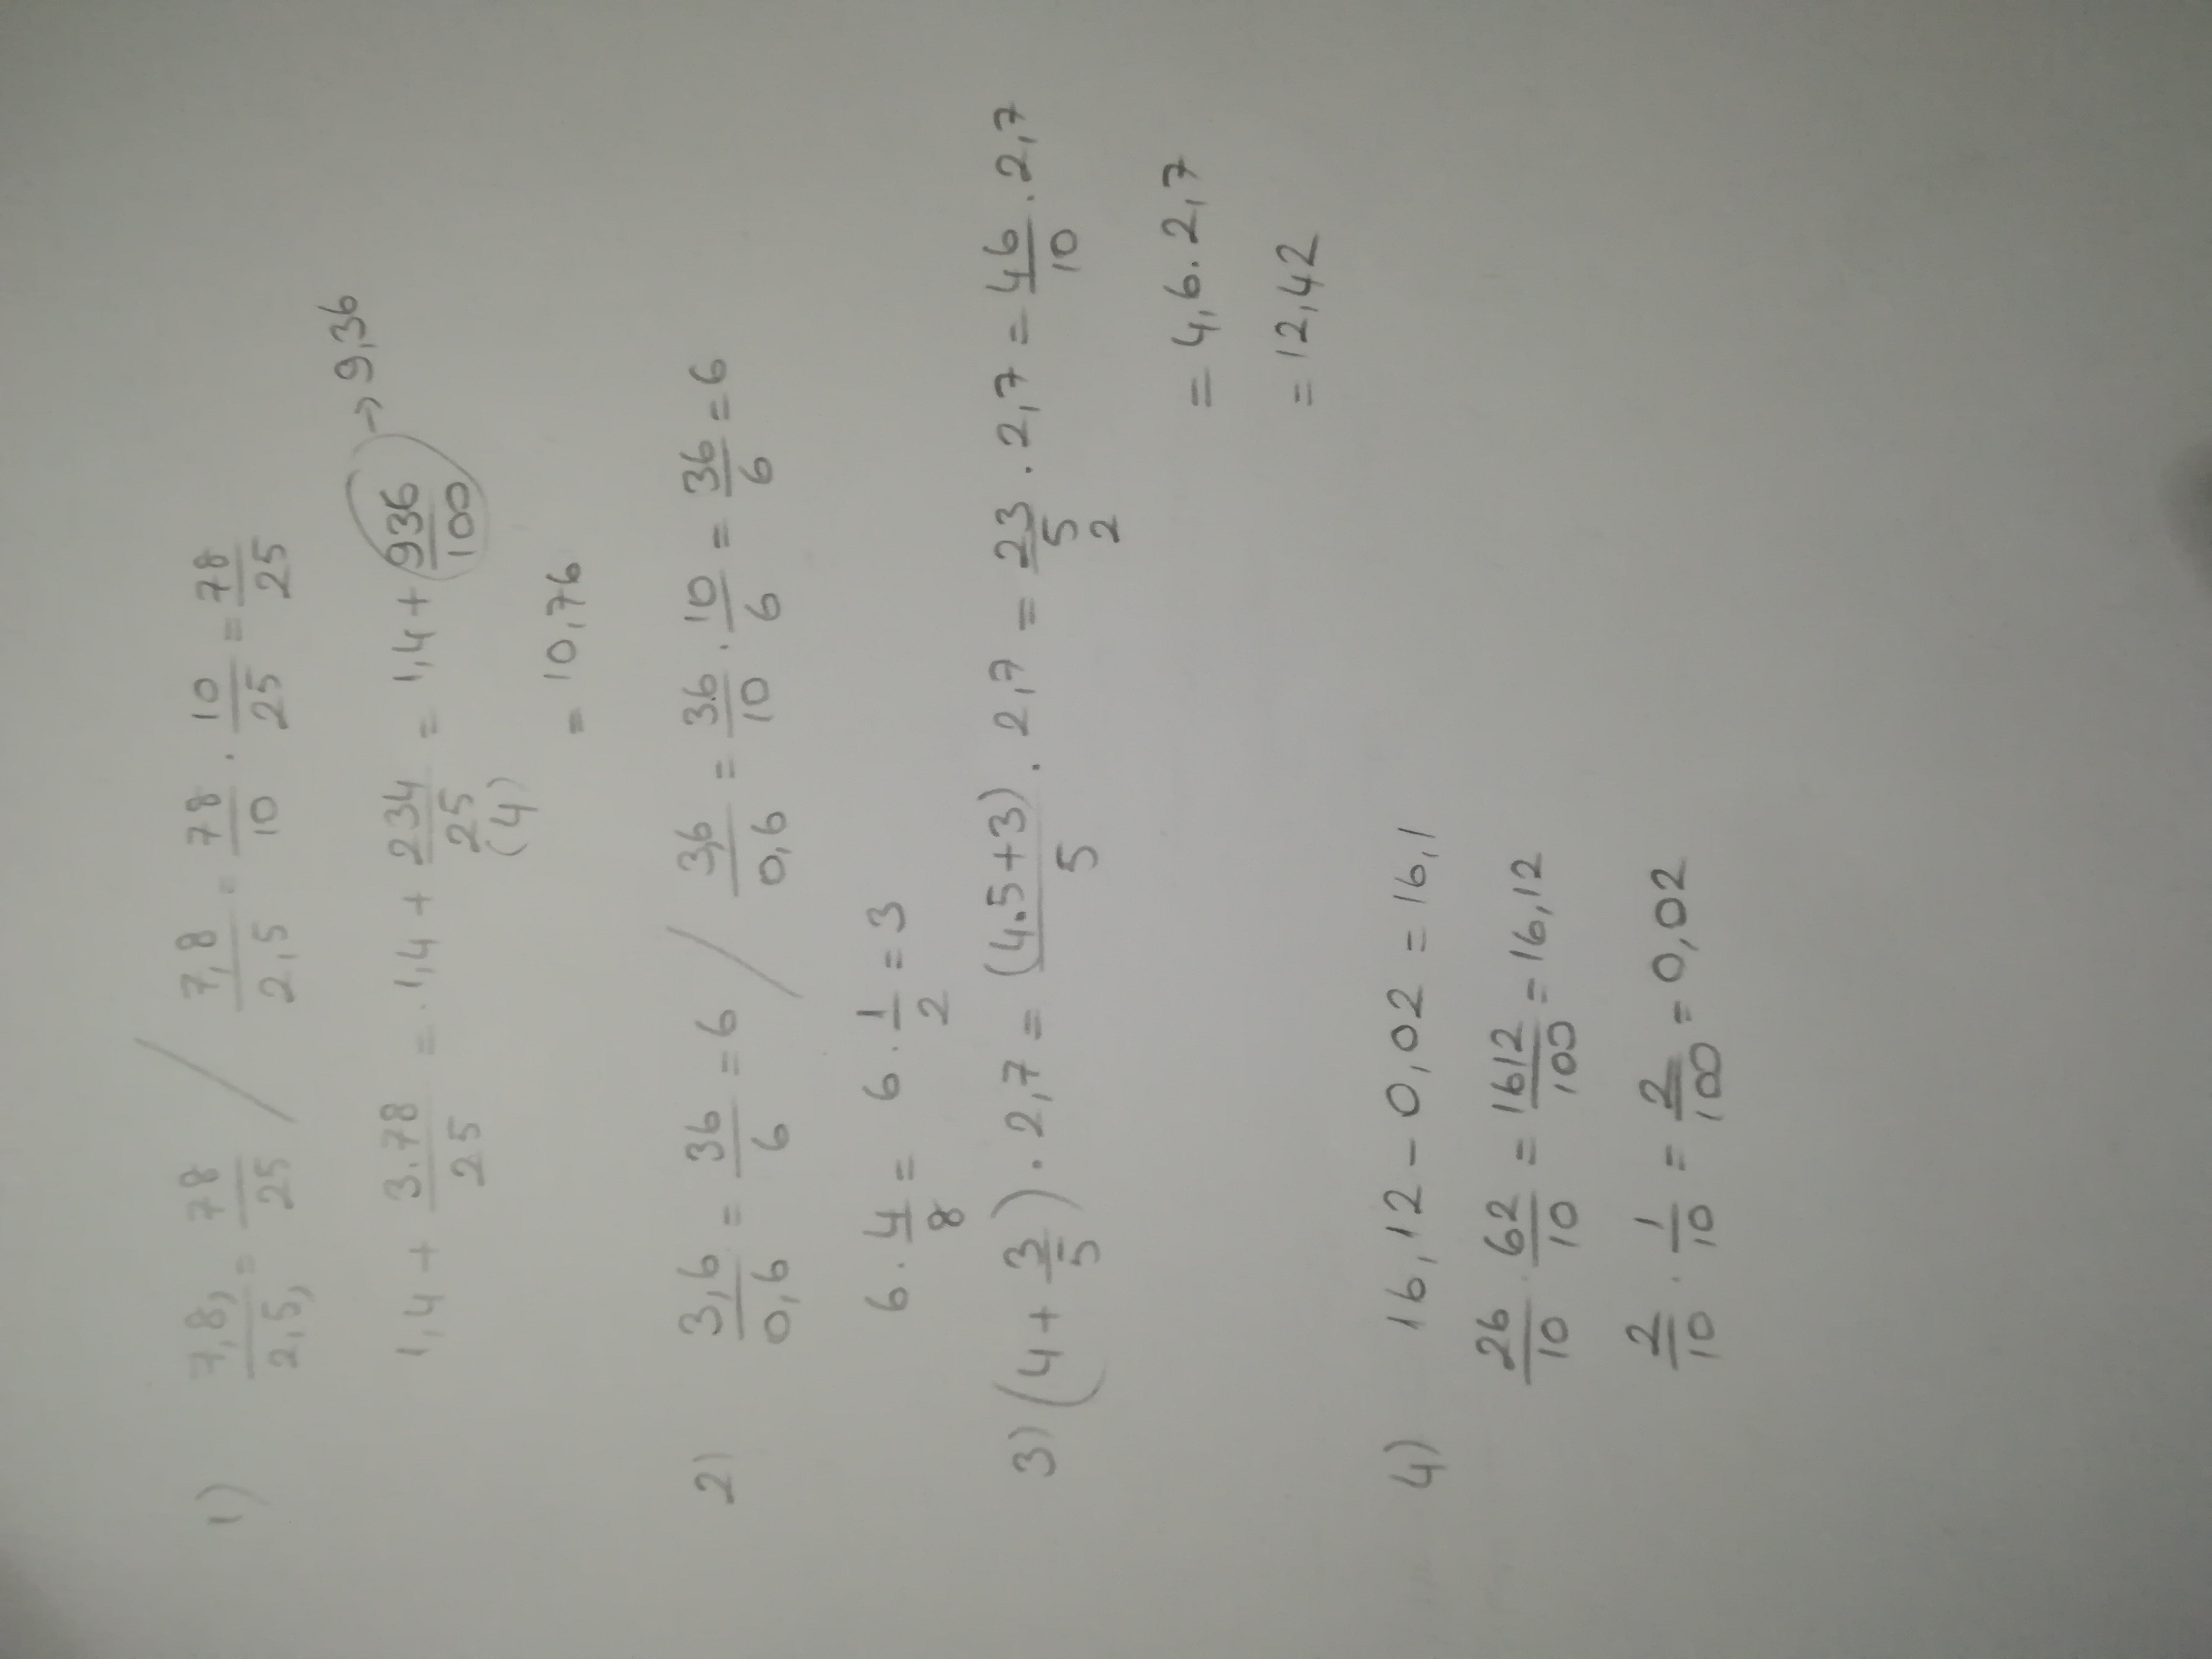 1) 7,8,/2,5, = 78/25 / 7,8/2,5 = 78/10 . 10/25 = 78/25
1,4 + 3.78/25 = 1,4 + 234/25 (4) = 1,4 + 936/100 → 9,36
= 10,76
2) 3,6/0,6 = 36/6 = 6 / 3,6/0,6 = 36/10 . 10/6 = 36/6 = 6
6 . 4/8 = 6 . 1/2 = 3
3) (4 + 3/5) . 2,7 = (4.5+3)/5 . 2,7 = 23/5 2 . 2,7 = 46/10 . 2,7
= 4,6 . 2,7
= 12,42
4) 16,12 - 0,02 = 16,1
26/10 . 62/10 = 1612/100 = 16,12
2/10 . 1/10 = 2/100 = 0,02